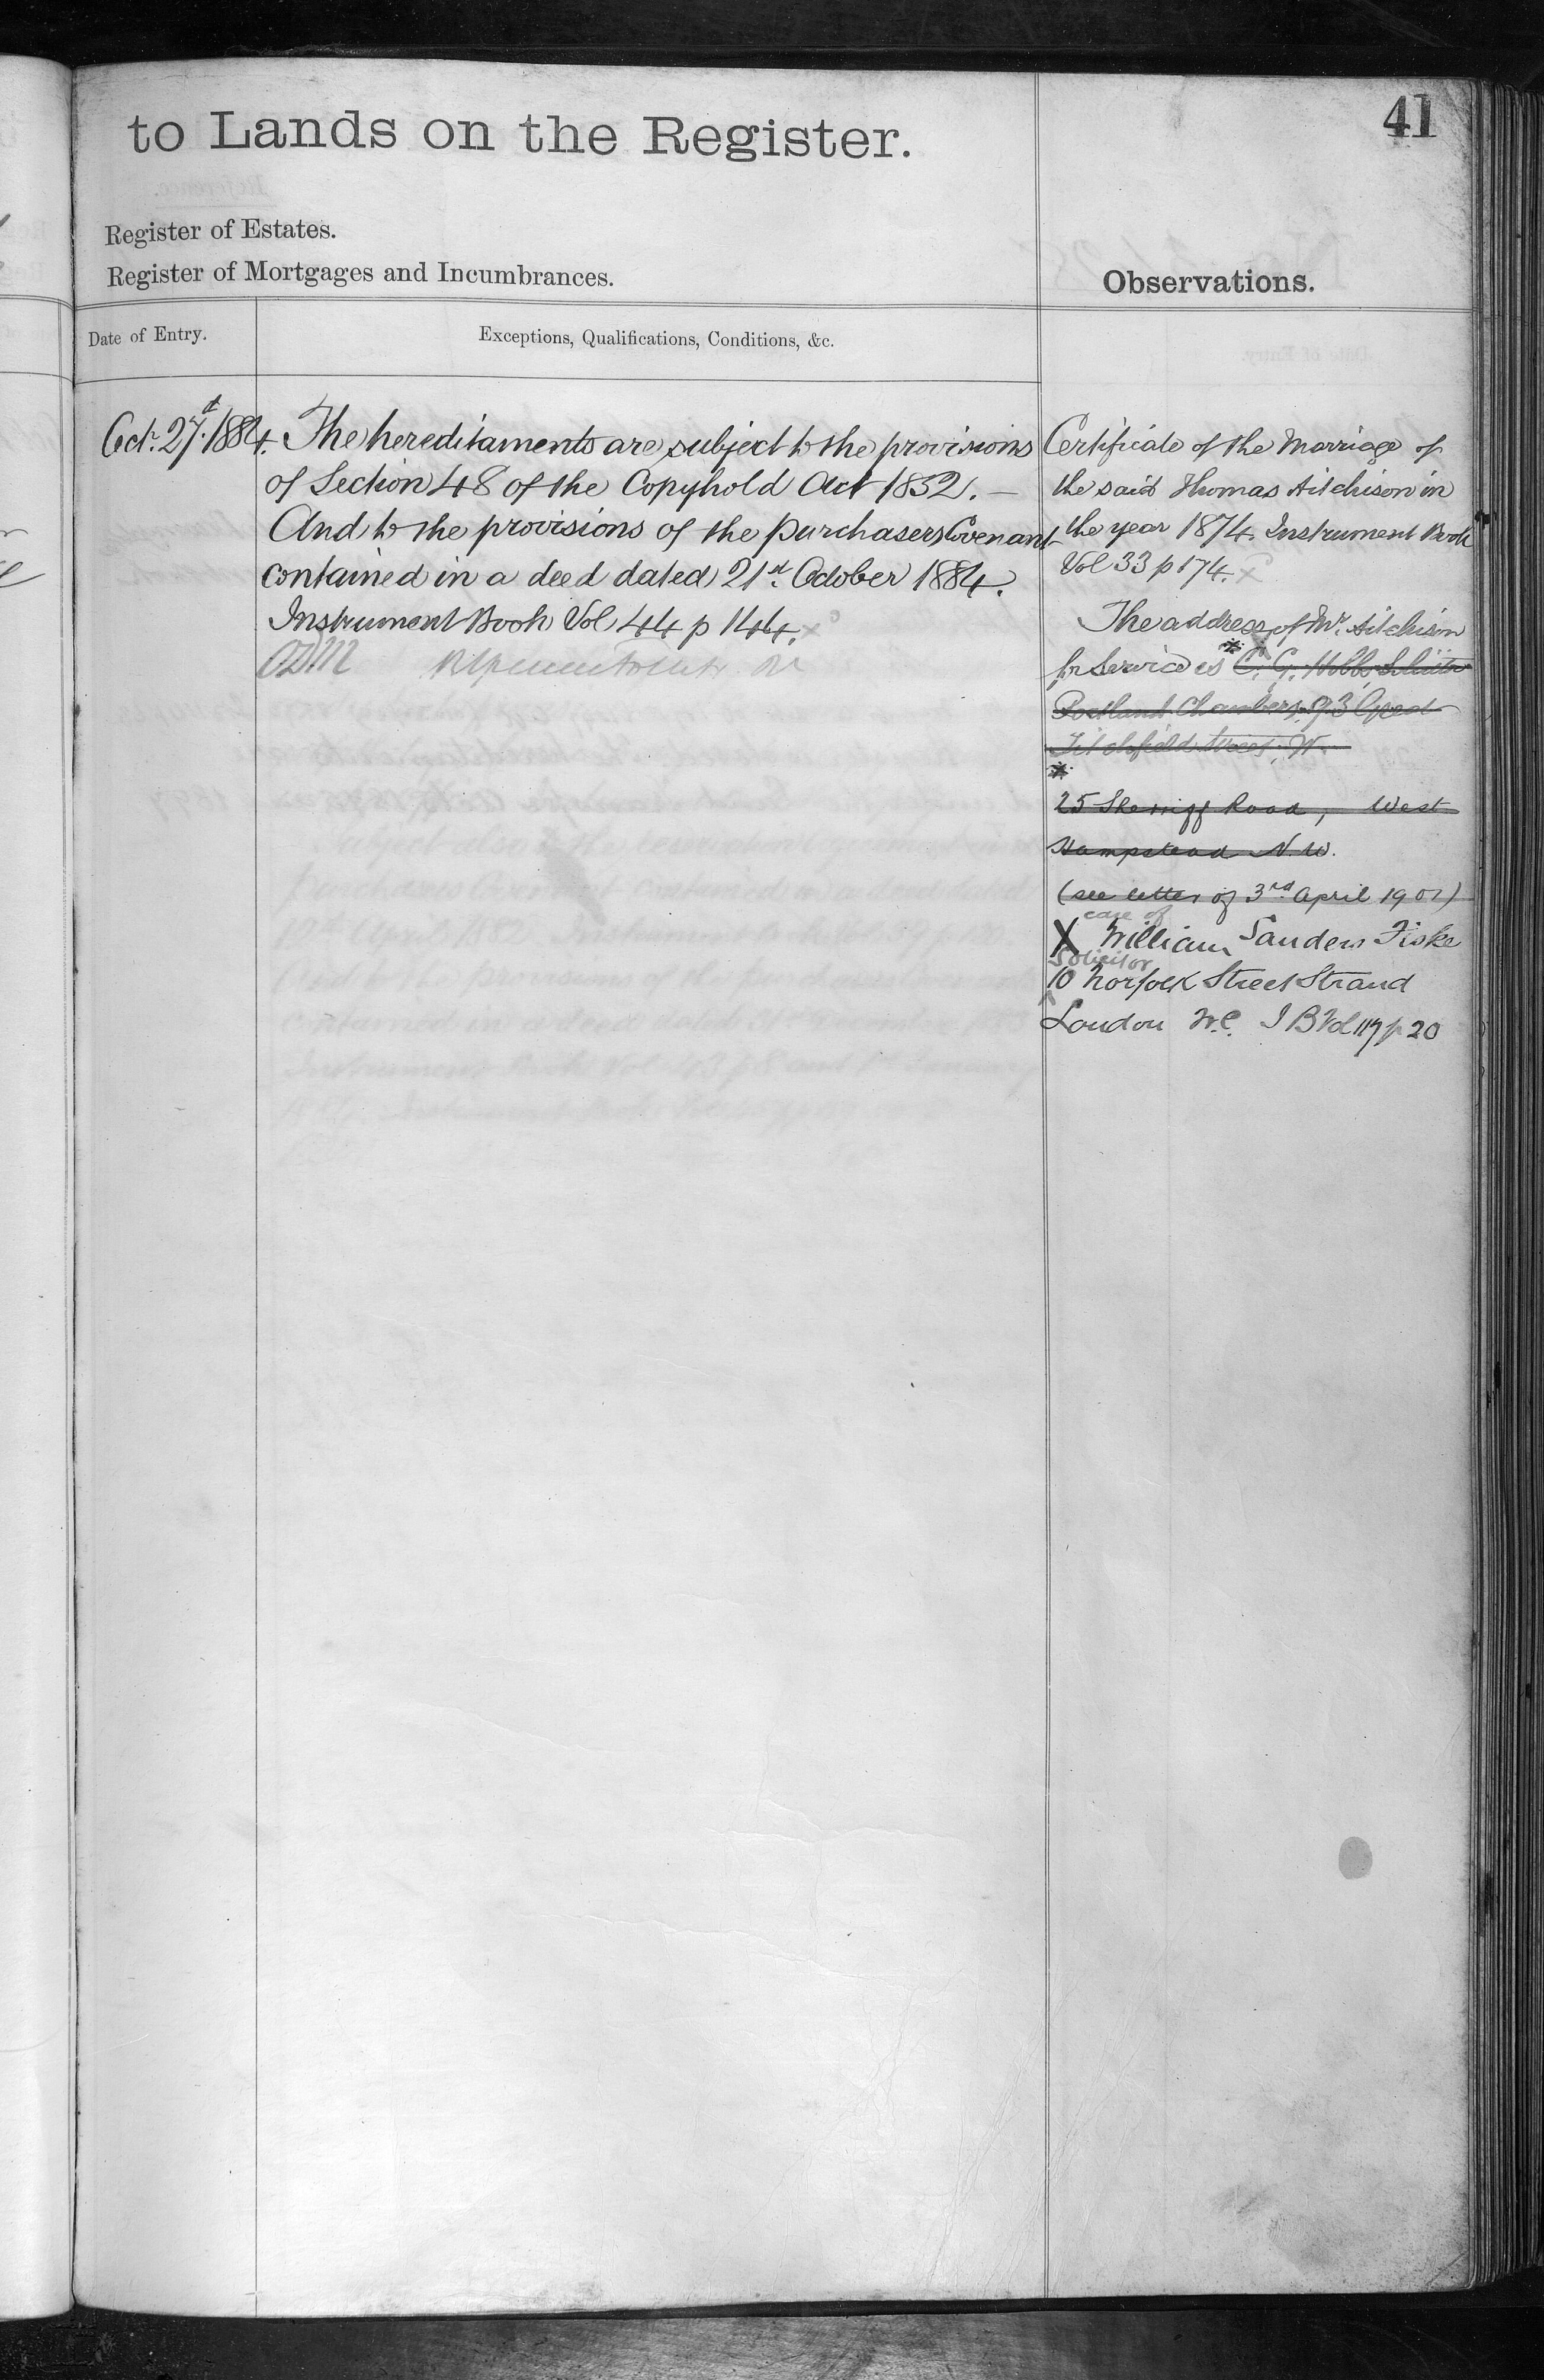 41
to Lands on the Register.
Register of Estates.
Register of Mortgages and Incumbrances.
Observations.
Date of Entry.
Exceptions, Qualifications, Conditions, &c.
Octr. 27th. 1884.
The hereditaments are subject to the provisions
of Section 48 of the Copyhold Act 1852. —
And to the provisions of the purchasers Covenant
contained in a deed dated 21st. October 1884.
Instrument Book Vol 44 p 144.
Certificate of the Marriage of
the said Thomas Aitchison in
the year 1874. Instrument Book
Vol 33 p 174.
The address of Mr. Aitchison
for Service is * C. G. Hobbs Solicitor
Portland Chambers 93 Great
Titchfield Street, W.
*
25 Sherriff Road, West
Hampstead N.W.
(see letter of 3rd April 1901)
care of
X William Sanders Fiske
Solicitor
10 Norfolk Street Strand
London W.C. I B Vol 117 p 20